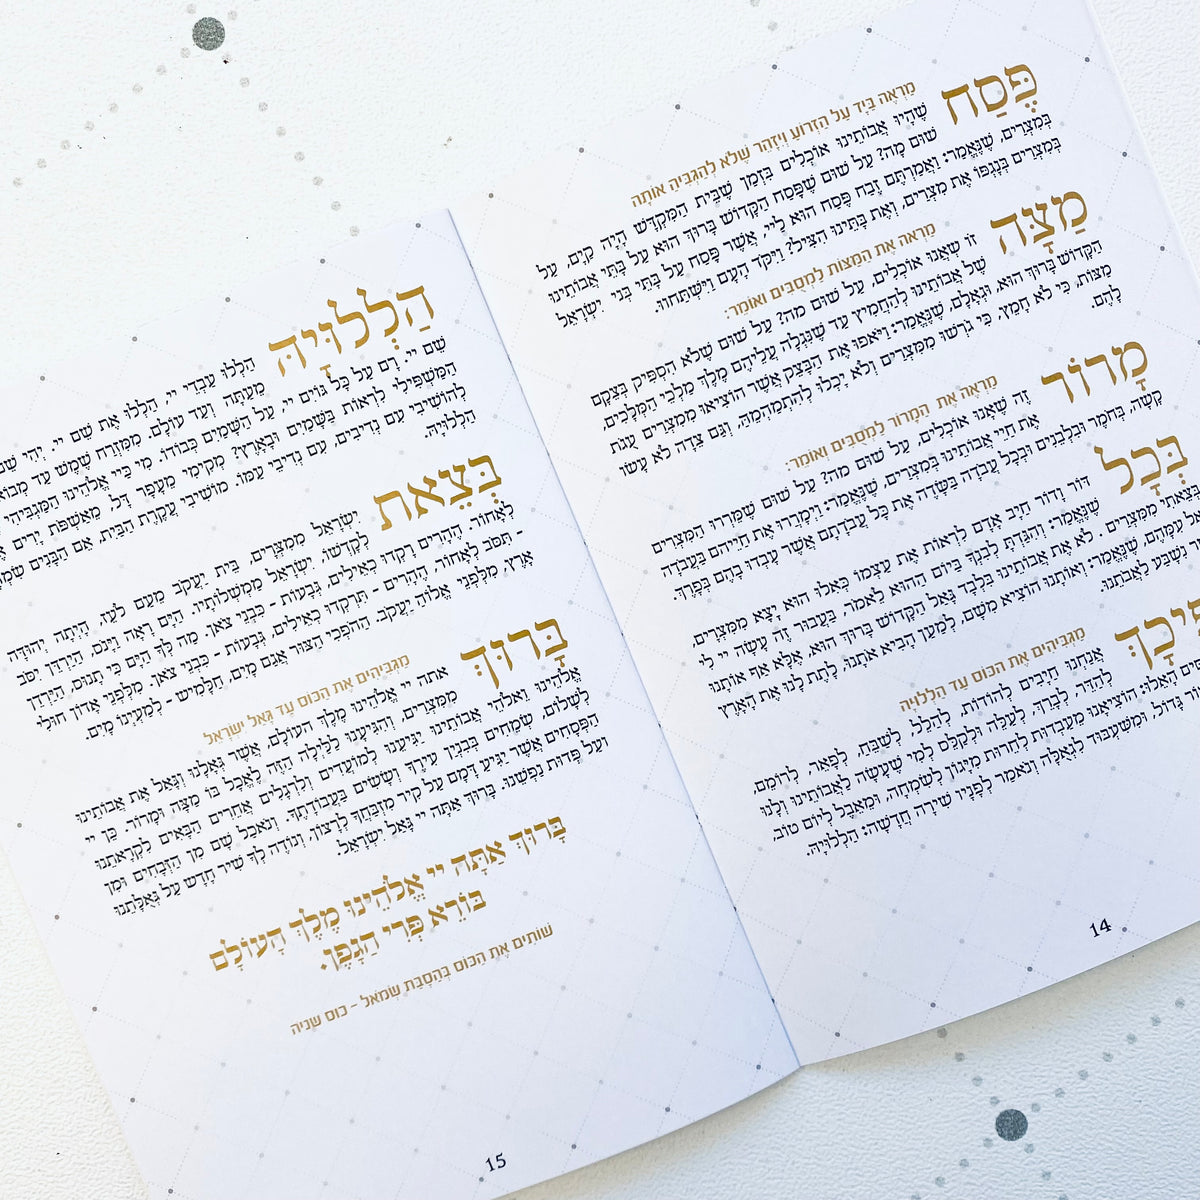 פֶּסַח
מַרְאֶה בַּיָּד עַל הַזְּרוֹעַ וְיִזָּהֵר שֶׁלֹּא לְהַגְבִּיהַּ אוֹתָהּ
שֶׁהָיוּ אֲבוֹתֵינוּ אוֹכְלִים בִּזְמַן שֶׁבֵּית הַמִּקְדָּשׁ הָיָה קַיָּם, עַל
שׁוּם מָה? עַל שׁוּם שֶׁפָּסַח הַקָּדוֹשׁ בָּרוּךְ הוּא עַל בָּתֵּי אֲבוֹתֵינוּ
בְּמִצְרַיִם, שֶׁנֶּאֱמַר: וַאֲמַרְתֶּם זֶבַח פֶּסַח הוּא לַיי, אֲשֶׁר פָּסַח עַל בָּתֵּי בְנֵי יִשְׂרָאֵל
בְּמִצְרַיִם בְּנָגְפּוֹ אֶת מִצְרַיִם, וְאֶת בָּתֵּינוּ הִצִּיל? וַיִּקֹּד הָעָם וַיִּשְׁתַּחֲווּ.
מַצָּה
מַרְאֶה אֶת הַמַּצּוֹת לַמְסֻבִּים וְאוֹמֵר:
זוֹ שֶׁאָנוּ אוֹכְלִים, עַל שׁוּם מה? עַל שׁוּם שֶׁלֹּא הִסְפִּיק בְּצֵקָם
שֶׁל אֲבוֹתֵינוּ לְהַחֲמִיץ עַד שֶׁנִּגְלָה עֲלֵיהֶם מֶלֶךְ מַלְכֵי הַמְּלָכִים,
הַקָּדוֹשׁ בָּרוּךְ הוּא, וּגְאָלָם, שֶׁנֶּאֱמַר: וַיֹּאפוּ אֶת הַבָּצֵק אֲשֶׁר הוֹצִיאוּ מִמִּצְרַיִם עֻגֹת
מַצּוֹת, כִּי לֹא חָמֵץ, כִּי גֹרְשׁוּ מִמִּצְרַיִם וְלֹא יָכְלוּ לְהִתְמַהְמֵהַּ, וְגַם צֵדָה לֹא עָשׂוּ
לָהֶם.
מָרוֹר
מַרְאֶה אֶת הַמָּרוֹר לַמְסֻבִּים וְאוֹמֵר:
זֶה שֶׁאָנוּ אוֹכְלִים, עַל שׁוּם מה? עַל שׁוּם שֶׁמֵּרְרוּ הַמִּצְרִים
אֶת חַיֵּי אֲבוֹתֵינוּ בְּמִצְרַיִם, שֶׁנֶּאֱמַר: וַיְמָרֲרוּ אֶת חַיֵּיהֶם בַּעֲבֹדָה
קָשָׁה, בְּחֹמֶר וּבִלְבֵנִים וּבְכָל עֲבֹדָה בַּשָּׂדֶה אֶת כָּל עֲבֹדָתָם אֲשֶׁר עָבְדוּ בָהֶם בְּפָרֶךְ.
בְּכָל
דּוֹר וָדוֹר חַיָּב אָדָם לִרְאוֹת אֶת עַצְמוֹ כְּאִלּוּ הוּא יָצָא מִמִּצְרַיִם,
שֶׁנֶּאֱמַר: וְהִגַּדְתָּ לְבִנְךָ בַּיּוֹם הַהוּא לֵאמֹר, בַּעֲבוּר זֶה עָשָׂה יי לִי
בְּצֵאתִי מִמִּצְרַיִם . לֹא אֶת אֲבוֹתֵינוּ בִּלְבָד גָּאַל הַקָּדוֹשׁ בָּרוּךְ הוּא, אֶלָּא אַף אוֹתָנוּ
עִמָּהֶם, שֶׁנֶּאֱמַר: וְאוֹתָנוּ הוֹצִיא מִשָּׁם, לְמַעַן הָבִיא אֹתָנוּ, לָתֶת לָנוּ אֶת הָאָרֶץ
נִשְׁבַּע לַאֲבֹתֵנוּ.
פִיכָךְ
מַגְבִּיהִים אֶת הַכּוֹס עַד הַלְלוּיָּהּ
אֲנַחְנוּ חַיָּבִים לְהוֹדוֹת, לְהַלֵּל, לְשַׁבֵּחַ, לְפָאֵר, לְרוֹמֵם,
לְהַדֵּר, לְבָרֵךְ, לְעַלֵּה וּלְקַלֵּס לְמִי שֶׁעָשָׂה לַאֲבוֹתֵינוּ וְלָנוּ
הָאֵלּוּ: הוֹצִיאָנוּ מֵעַבְדוּת לְחֵרוּת מִיָּגוֹן לְשִׂמְחָה, וּמֵאֵבֶל לְיוֹם טוֹב,
גָּדוֹל, וּמִשִּׁעְבּוּד לִגְאֻלָּה וְנֹאמַר לְפָנָיו שִׁירָה חֲדָשָׁה: הַלְלוּיָּהּ.
14
הַלְלוּיָהּ
הַלְלוּ עַבְדֵי יי, הַלְלוּ אֶת שֵׁם יי. יְהִי שֵׁם
מֵעַתָּה וְעַד עוֹלָם. מִמִּזְרַח שֶׁמֶשׁ עַד מְבוֹאוֹ
שֵׁם יי. רָם עַל כָּל גּוֹיִם יי, עַל הַשָּׁמַיִם כְּבוֹדוֹ. מִי כַּיי אֱלֹהֵינוּ הַמַּגְבִּיהִי
הַמַּשְׁפִּילִי לִרְאוֹת בַּשָּׁמַיִם וּבָאָרֶץ? מְקִימִי מֵעָפָר דָּל, מֵאַשְׁפֹּת יָרִים
לְהוֹשִׁיבִי עִם נְדִיבִים, עִם נְדִיבֵי עַמּוֹ. מוֹשִׁיבִי עֲקֶרֶת הַבַּיִת, אֵם הַבָּנִים
הַלְלוּיָהּ.
בְּצֵאת
יִשְׂרָאֵל מִמִּצְרַיִם, בֵּית יַעֲקֹב מֵעַם לֹעֵז, הָיְתָה יְהוּדָה
לְקָדְשׁוֹ, יִשְׂרָאֵל מַמְשְׁלוֹתָיו. הַיָּם רָאָה וַיָּנֹס, הַיַּרְדֵּן יִסֹּב
לְאָחוֹר. הֶהָרִים רָקְדוּ כְאֵילִים, גְּבָעוֹת - כִּבְנֵי צֹאן. מַה לְּךָ הַיָּם כִּי תָנוּס, הַיַּרְדֵּן
- תִּסֹּב לְאָחוֹר, הֶהָרִים - תִּרְקְדוּ כְאֵילִים, גְּבָעוֹת - כִּבְנֵי צֹאן. מִלִּפְנֵי אָדוֹן חוּלִי
אָרֶץ, מִלִּפְנֵי אֱלוֹהַּ יַעֲקֹב. הַהֹפְכִי הַצּוּר אֲגַם מָיִם, חַלָּמִישׁ - לְמַעְיְנוֹ מָיִם.
בָּרוּךְ
מַגְבִּיהִים אֶת הַכּוֹס עַד גָּאַל יִשְׂרָאֵל
אַתָּה יי אֱלֹהֵינוּ מֶלֶךְ הָעוֹלָם, אֲשֶׁר גְּאָלָנוּ וְגָאַל אֶת אֲבוֹתֵינוּ
מִמִּצְרַיִם, וְהִגִּיעָנוּ לַלַּיְלָה הַזֶּה לֶאֱכָל בּוֹ מַצָּה וּמָרוֹר. כֵּן יי
אֱלֹהֵינוּ וֵאלֹהֵי אֲבוֹתֵינוּ יַגִּיעֵנוּ לְמוֹעֲדִים וְלִרְגָלִים אֲחֵרִים הַבָּאִים לִקְרָאתֵנוּ
לְשָׁלוֹם, שְׂמֵחִים בְּבִנְיַן עִירֶךָ וְשָׂשִׂים בַּעֲבוֹדָתֶךָ. וְנֹאכַל שָׁם מִן הַזְּבָחִים וּמִן
הַפְּסָחִים אֲשֶׁר יַגִּיעַ דָּמָם עַל קִיר מִזְבַּחֲךָ לְרָצוֹן, וְנוֹדֶה לְךָ שִׁיר חָדָשׁ עַל גְּאֻלָּתֵנוּ
וְעַל פְּדוּת נַפְשֵׁנוּ. בָּרוּךְ אַתָּה יי גָּאַל יִשְׂרָאֵל.
בָּרוּךְ אַתָּה יי אֱלֹהֵינוּ מֶלֶךְ הָעוֹלָם
בּוֹרֵא פְּרִי הַגָּפֶן.
שׁוֹתִים אֶת הַכּוֹס בַּהֲסָבַת שְׂמֹאל - כּוֹס שְׁנִיָּה
15